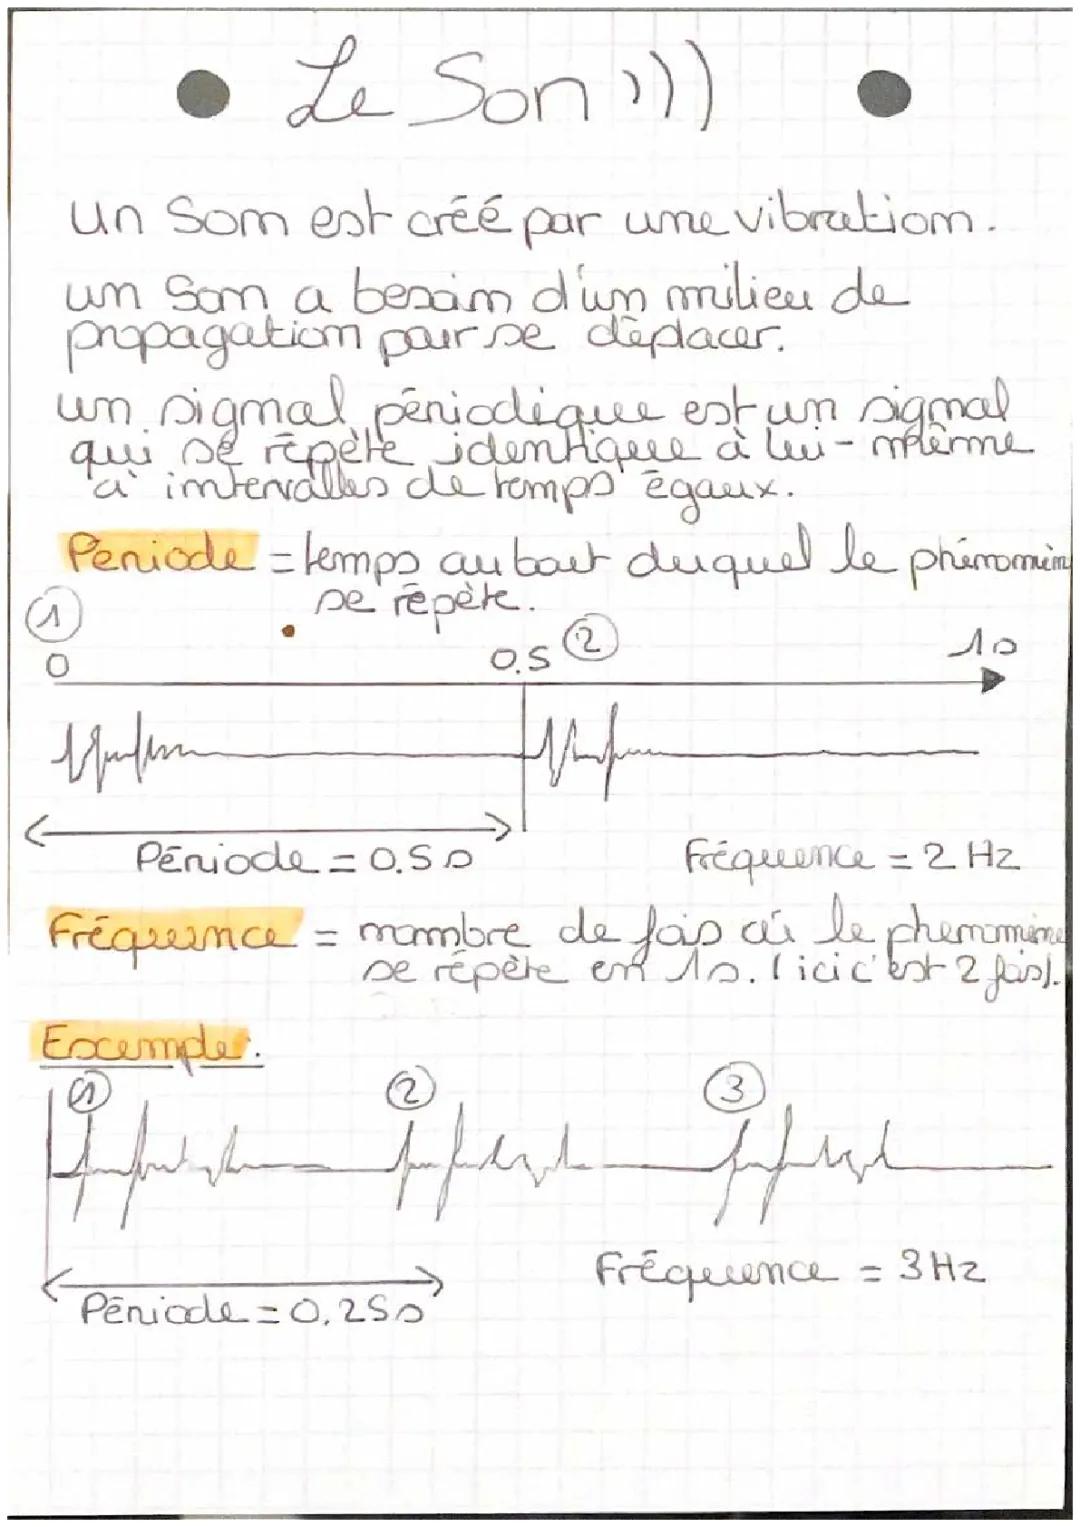 Le Son )))
un Son est créé par une vibration.
un son a besoin d'un milieu de
propagation pour se déplacer.
un signal périodique est un signal
qui se répète identique à lui-même
à intervalles de temps égaux.
Periode = temps au bout duquel le phénomèn
se répète.
1
0
0.5
2
1s
Période = 0.5s
Fréquence = 2 Hz
Fréquence = nombre de fois où le phenomène
se répète en 1s. (ici c'est 2 fois).
Exemple:
1
2
3
Fréquence = 3 Hz
Période = 0,25s